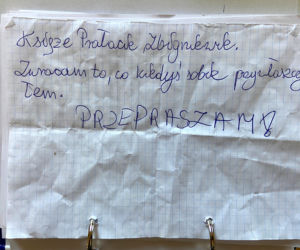 Księże Prałacie Zbigniewie.
Zwracam to, co kiedyś sobie przywłaszczy
łem.
PRZEPRASZAM